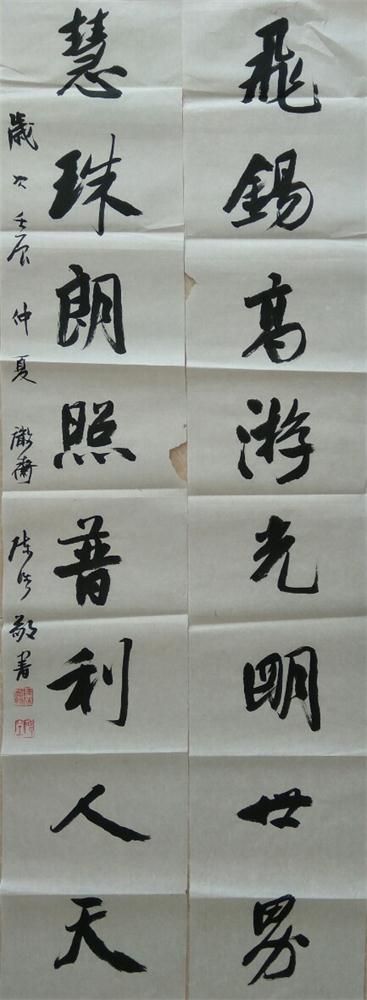 飛錫高游光明世界
慧珠朗照普利人天
歲次壬辰仲夏
敬書